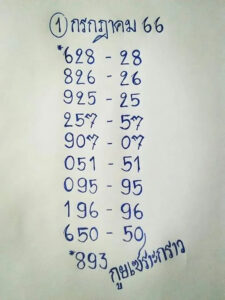 ① กรกฎาคม 66
*628 - 28
826 - 26
925 - 25
257 - 57
907 - 07
051 - 51
095 - 95
196 - 96
650 - 50
*893